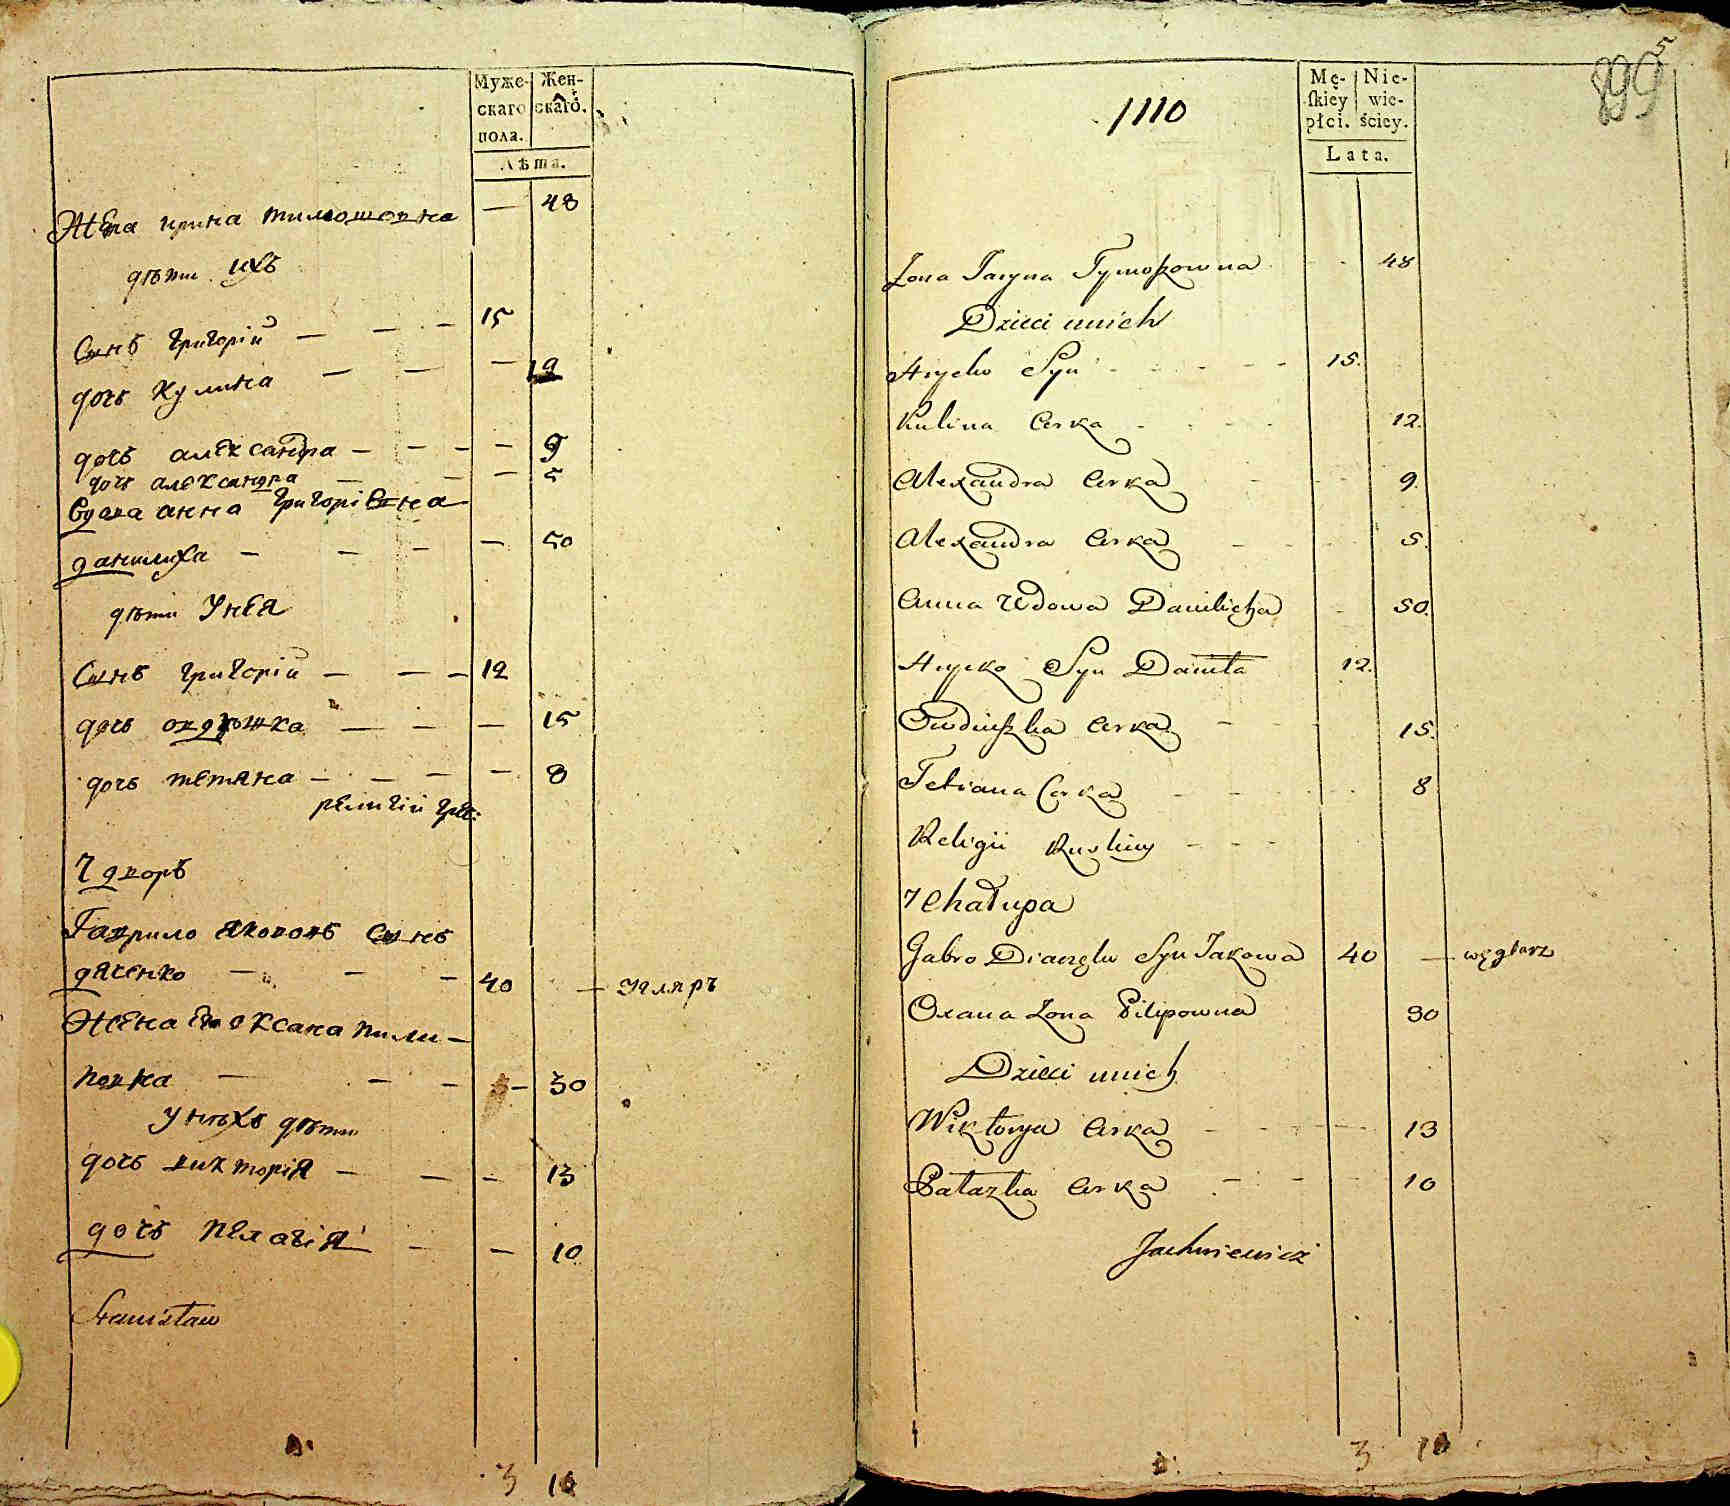 Муже-
скаго
пола.
Жен-
скаго.
Лѣта.
Жена ирина тимошовна — 48
дѣти ихъ
Сынъ григорій — — — 15
дочь кулина — — — 12
дочь александра — — — — 9
дочь александра — — — 5
Вдова анна григоріевна
данилиха — — — — 50
дѣти Унея
Сынъ григорій — — — 12
дочь овдюшка — — — 15
дочь тетяна — — — — 8
религіи гре:
7 дворъ
Гаврило якововъ Сынъ
дяченко — — — 40 — угляръ
Жена Его оксана пили —
повна — — — — 30
Унихъ дѣти
дочь викторія — — — 13
дочь пелагія — — 10
Stanisław
3 10
1110
895
Mę-
skiey
płci.
Nie-
wie-
ściey.
Lata.
Zona Jaryna Tymoszowna 48
Dzieci unich
Hryćko Syn 15.
Kulina Corka 12.
Alexandra Corka 9.
Alexandra Corka 5.
Anna Wdowa Danilicha 50.
Hryćko Syn Daniła 12.
Owdiuszka Corka 15.
Tetiana Corka 8
Religii Ruskiey
7 Chałupa
Gabro Diaczęko Syn Jakowa 40 — węglarz
Oxana Zona Pilipowna 30
Dzieci unich
Wiktorya Corka 13
Pałazka Corka 10
Jachniewicz
3 10